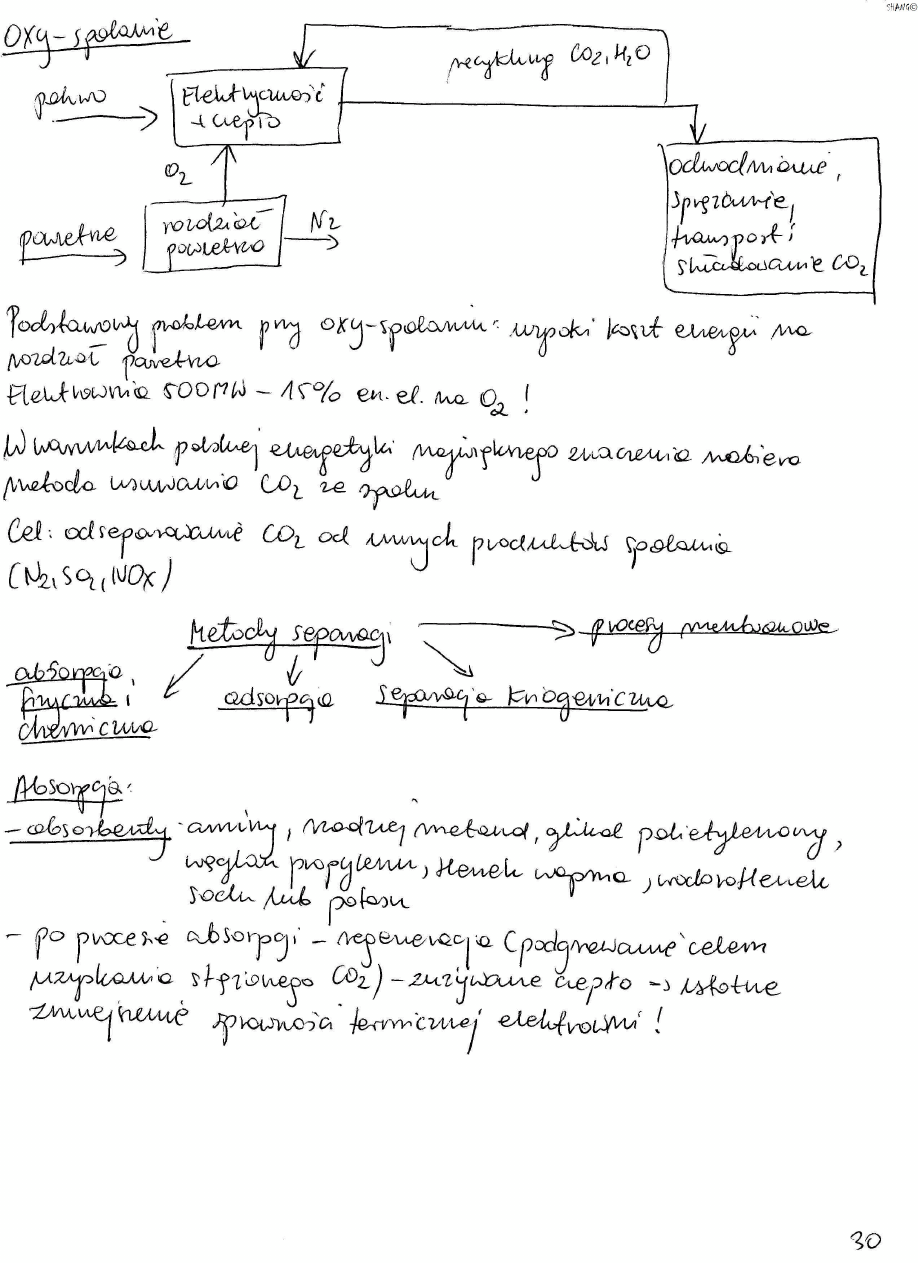 SHANG©
Oxy-spalanie
recykling CO2, H2O
paliwo
Elektryczność
+ ciepło
O2
odwodnienie,
sprężanie,
transport i
składowanie CO2
powietrze
rozdział
powietrza
N2
Podstawowy problem przy oxy-spalaniu: wysoki koszt energii na
rozdział powietrza
Elektrownia 500MW – 15% en. el. na O2 !
W warunkach polskiej energetyki największego znaczenia nabiera
metoda usuwania CO2 ze spalin
Cel: odseparowanie CO2 od innych produktów spalania
(N2, SO2, NOx)
Metody separacji
procesy membranowe
absorpcja
fizyczna i
chemiczna
adsorpcja
separacja kriogeniczna
Absorpcja:
- absorbenty - aminy, rzadziej metanol, glikol polietylenowy,
węglan propylenu, tlenek wapnia, wodorotlenek
sodu lub potasu
- po procesie absorpcji – regeneracja (podgrzewanie celem
uzyskania stężonego CO2) – zużywane ciepło → istotne
zmniejszenie sprawności termicznej elektrowni !
30